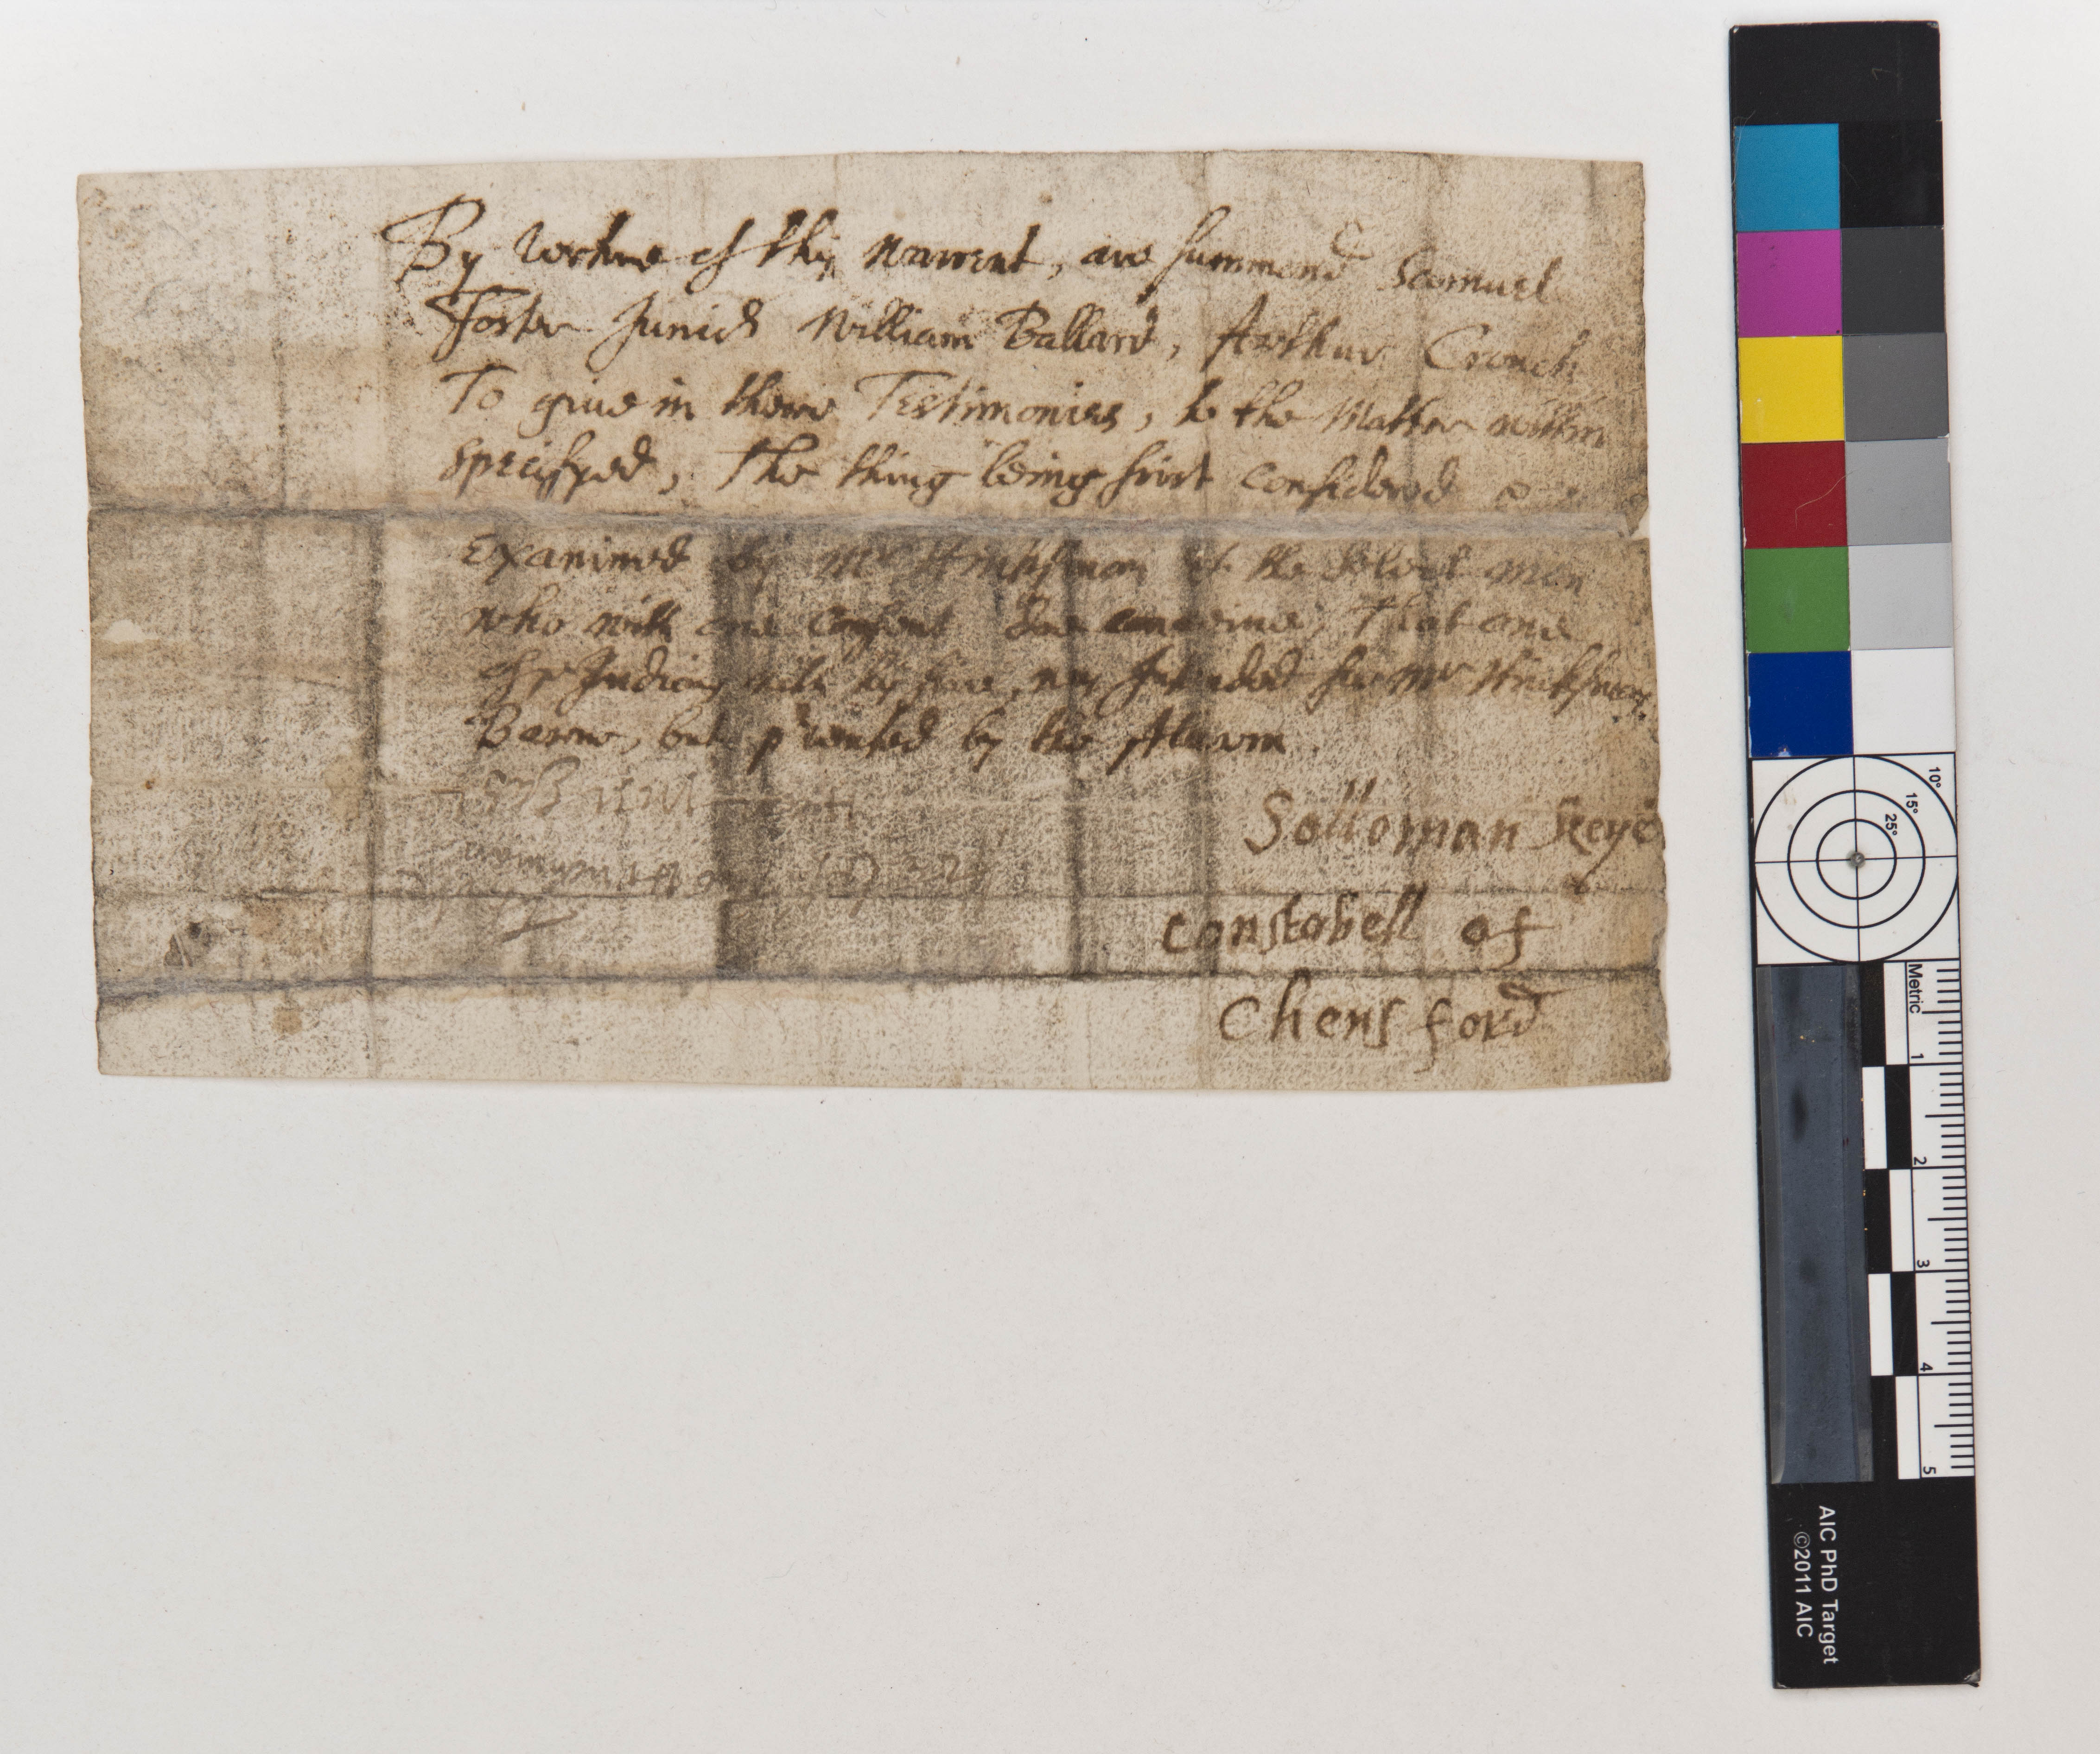 By vertue of this warrent, are summond Samuel
Foster Junior William Ballard, Arthur Crouch
To giue in there Testimonies, to the Matter within
specifyed, The thing being first considered &
Examined by Mr Hinksman & the select men
who with one consent doe conceive, that one
of ye Indians with his fire, was Intended for Mr Hinksmans
Barne, but prvented by the Alarm.
Solloman Keye
Constabell of
Chensford
10°
15°
25°
Metric
1
2
3
4
5
AIC PhD Target
©2011 AIC